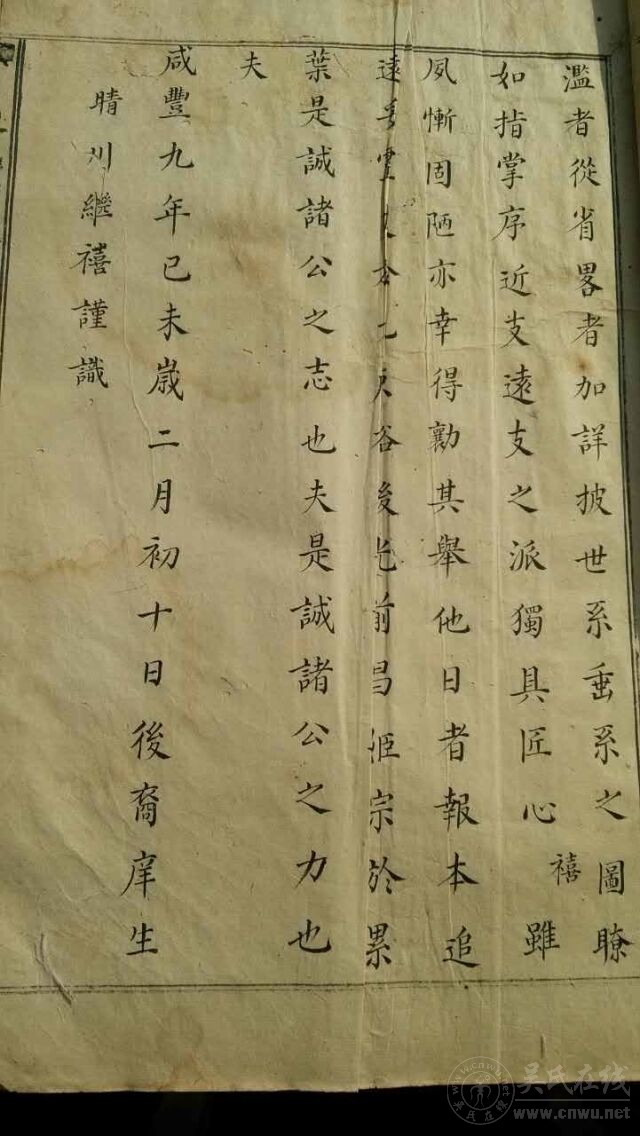 濫者從省畧者加詳披世系垂系之圖瞭
如指掌序近支遠支之派獨具匠心禧雖
夙慚固陋亦幸得勷其舉他日者報本追
遠 裕後光前昌姬宗於累
葉是誠諸公之志也夫是誠諸公之力也
夫
咸豐九年己未歲二月初十日後裔庠生
晴川繼禧謹識
吴氏在线
www.cnwu.net